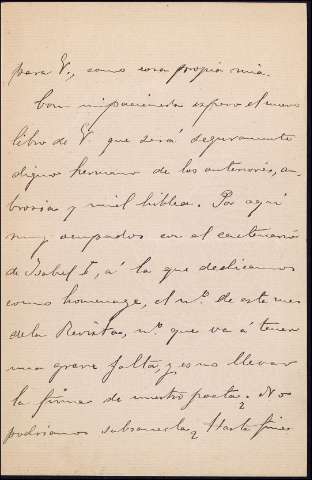 para V., como cosa propia mia.
Con impaciencia espero el nuevo
libro de V. que será seguramente
digno hermano de los anteriores, am-
brosia y miel hiblea. Por aquí
muy ocupados en el centenario
de Isabel I, á la que dedicamos
como homenage, el nº. de este mes
de la Revista, nº. que va á tener
una grave falta, y es no llevar
la firma de nuestro poeta. No
podriamos subsanarla, Hasta fines